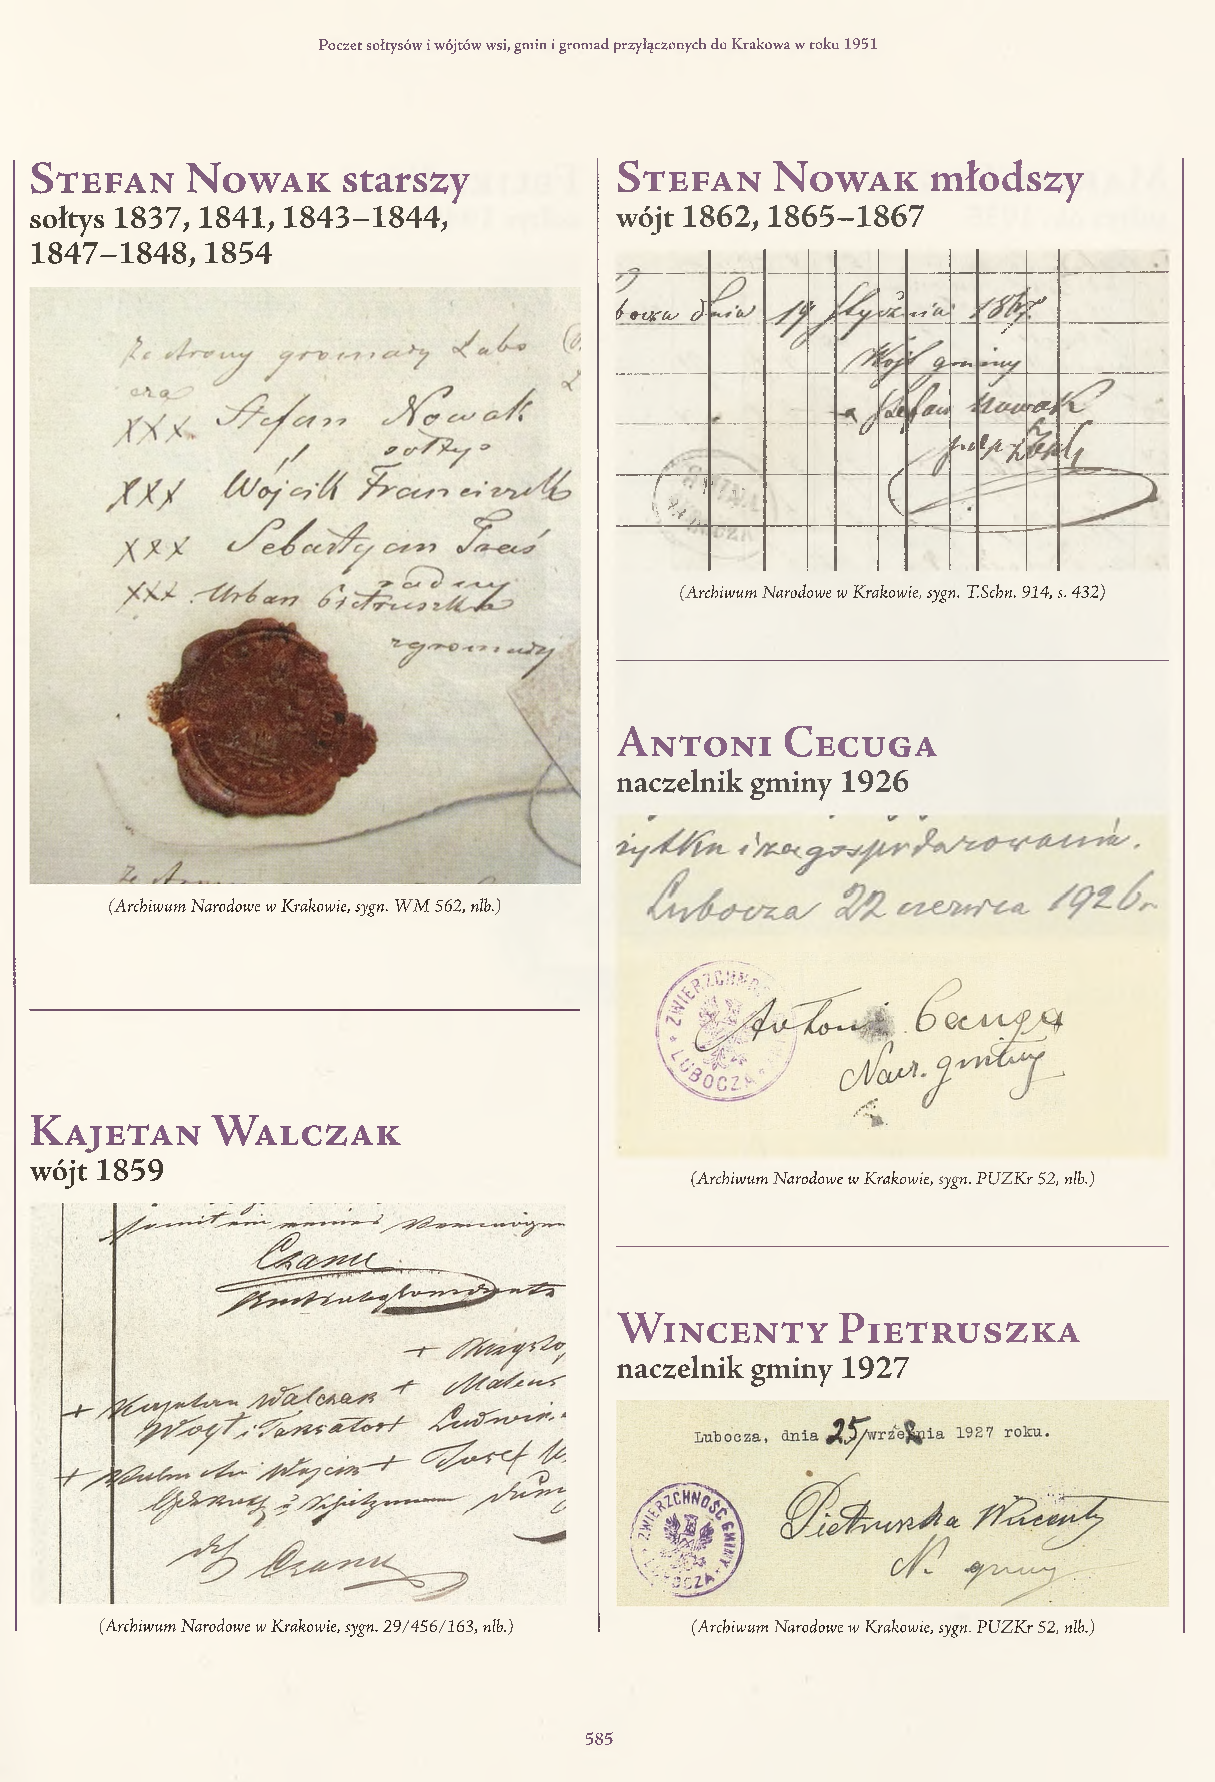 Poczet sołtysów i wójtów wsi, gmin i gromad przyłączonych do Krakowa w roku 1951
Stefan Nowak starszy
sołtys 1837, 1841, 1843–1844,
1847–1848, 1854
Ze strony gromady Łubo
cza
XXX Stefan Nowak
sołtys
XXX Wójcik Franciszek
XXX Sebastyan Treś
radny
XXX Urban Pietruszka
z gromady
(Archiwum Narodowe w Krakowie, sygn. WM 562, nlb.)
Kajetan Walczak
wójt 1859
+ Kajetan Walczak +
Woyt i Taxator +
(Archiwum Narodowe w Krakowie, sygn. 29/456/163, nlb.)
Stefan Nowak młodszy
wójt 1862, 1865–1867
bocza dnia 19 stycznia 1867.
Wójt gminy
Stefan Nowak
GMINA
(Archiwum Narodowe w Krakowie, sygn. T.Schn. 914, s. 432)
Antoni Cecuga
naczelnik gminy 1926
żytku i zagospodarowania.
Lubocza 22 czerwca 1926 r.
ZWIERZCHN
LUBOCZA
Antoni Cecuga
Nacz. gminy
(Archiwum Narodowe w Krakowie, sygn. PUZKr 52, nlb.)
Wincenty Pietruszka
naczelnik gminy 1927
Lubocza, dnia 25/września 1927 roku.
ZWIERZCHNOŚĆ GMINY
LUBOCZA
Pietruszka Wincenty
N. gminy
(Archiwum Narodowe w Krakowie, sygn. PUZKr 52, nlb.)
585